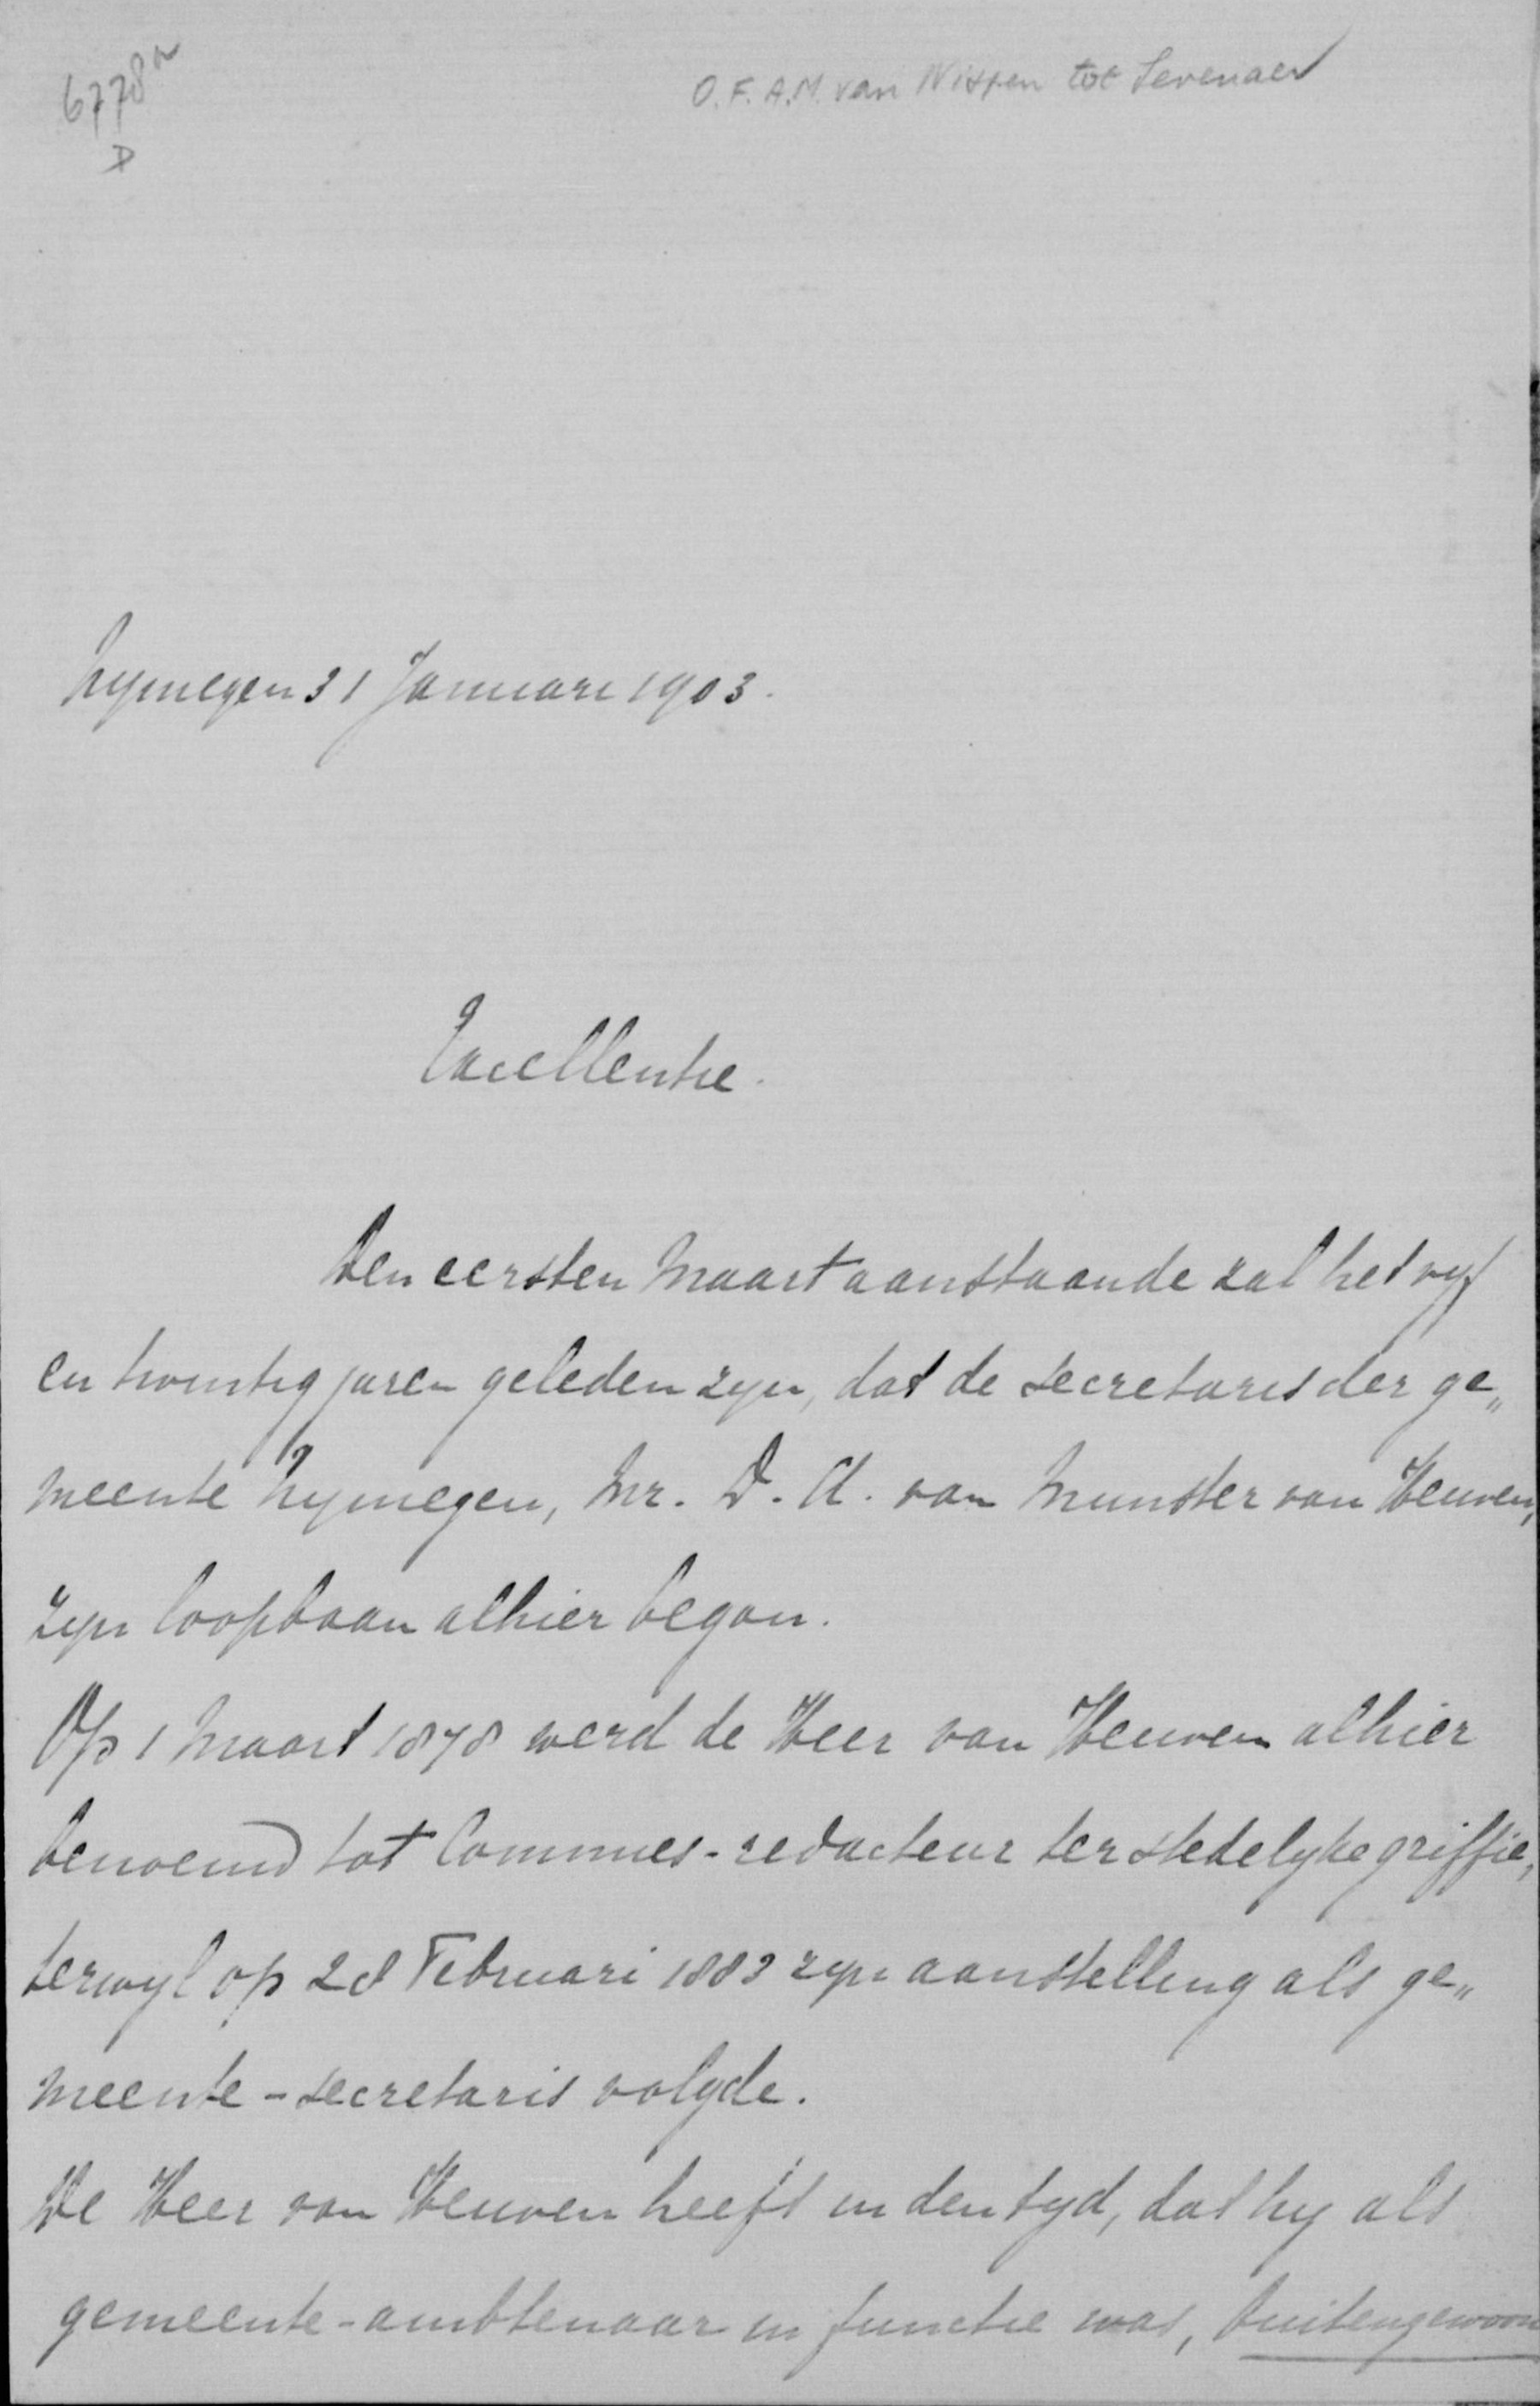 6778a
D
O.F.A.M. van Nispen tot Sevenaer
Nymegen 31 Januari 1903.
Excellentie.
Den eersten Maart aanstaande zal het vyf
en twintig jaren geleden zyn, dat de secretaris der ge„
meente Nymegen, Mr. D. A. van Munster van Heuven,
zyn loopbaan alhier begon.
Op 1 Maart 1878 werd de Heer van Heuven alhier
benoemd tot Commies-redacteur ter stedelyke griffie,
terwyl op 28 Februari 1883 zyn aanstelling als ge„
meente-secretaris volgde.
De Heer van Heuven heeft in den tyd, dat hy als
gemeente-ambtenaar in functie was, buitengewoon